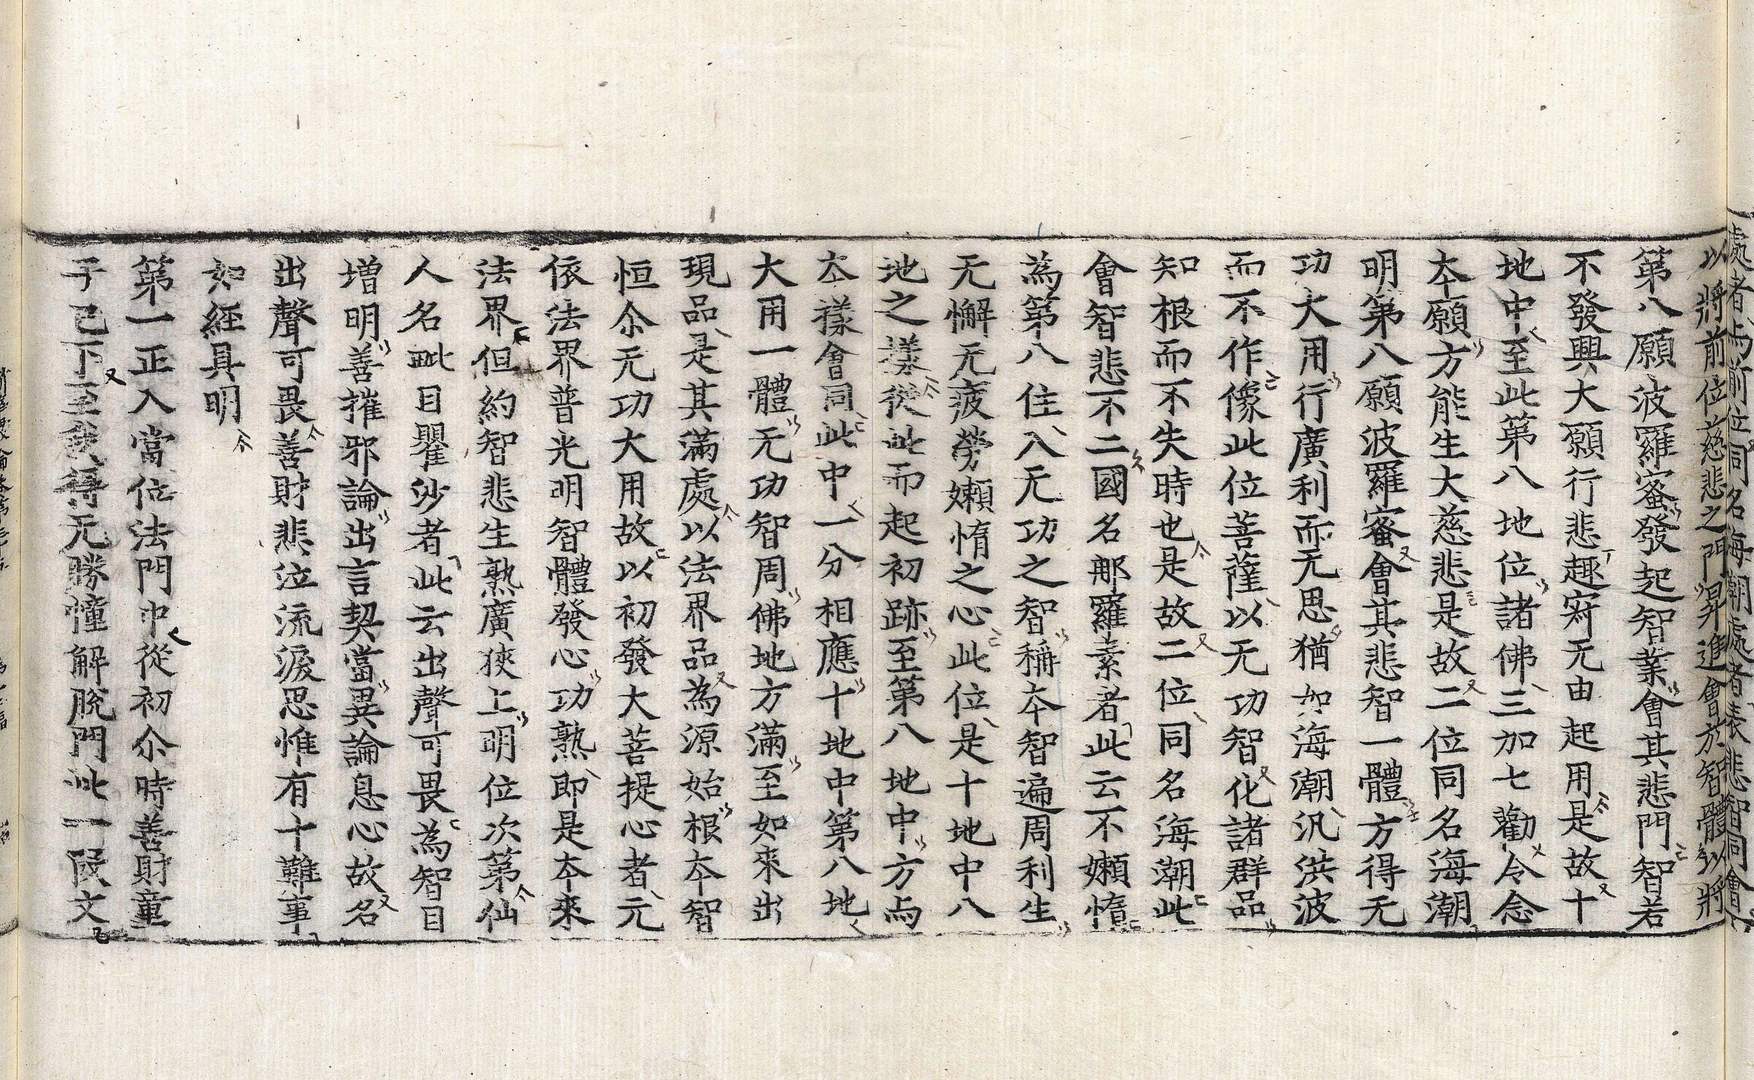 處者与前位同名海潮處者表悲智同會
以將前位慈悲之門昇進會於智體以將
第八願波羅蜜發起智業會其悲門智若
不發興大願行悲趣寂无由起用是故十
地中至此第八地位諸佛三加七勸令念
夲願方能生大慈悲是故二位同名海潮
明第八願波羅蜜會其悲智一體方得无
功大用行廣利而无思猶如海潮汎洪波
而不作像此位菩薩以无功智化諸群品
知根而不失時也是故二位同名海潮此
會智悲不二國名那羅素者此云不嬾惰
為第八住入无功之智稱夲智遍周利生
无懈无疲勞嬾惰之心此位是十地中八
地之㨾從此而起初跡至第八地中方与
夲㨾會同此中一分相應十地中第八地
大用一體无功智周佛地方滿至如來出
現品是其滿處以法界品為源始根夲智
恒尒无功大用故以初發大菩提心者元
依法界普光明智體發心功熟即是夲來
法界但約智悲生熟廣狹上明位次第仙
人名毗目瞿沙者此云出聲可畏為智目
增明善摧邪論出言契當異論息心故名
出聲可畏善財悲泣流淚思惟有十難事
如經具明
第一正入當位法門中從初尒時善財童
子已下至我得无勝幢解脫門此一段文